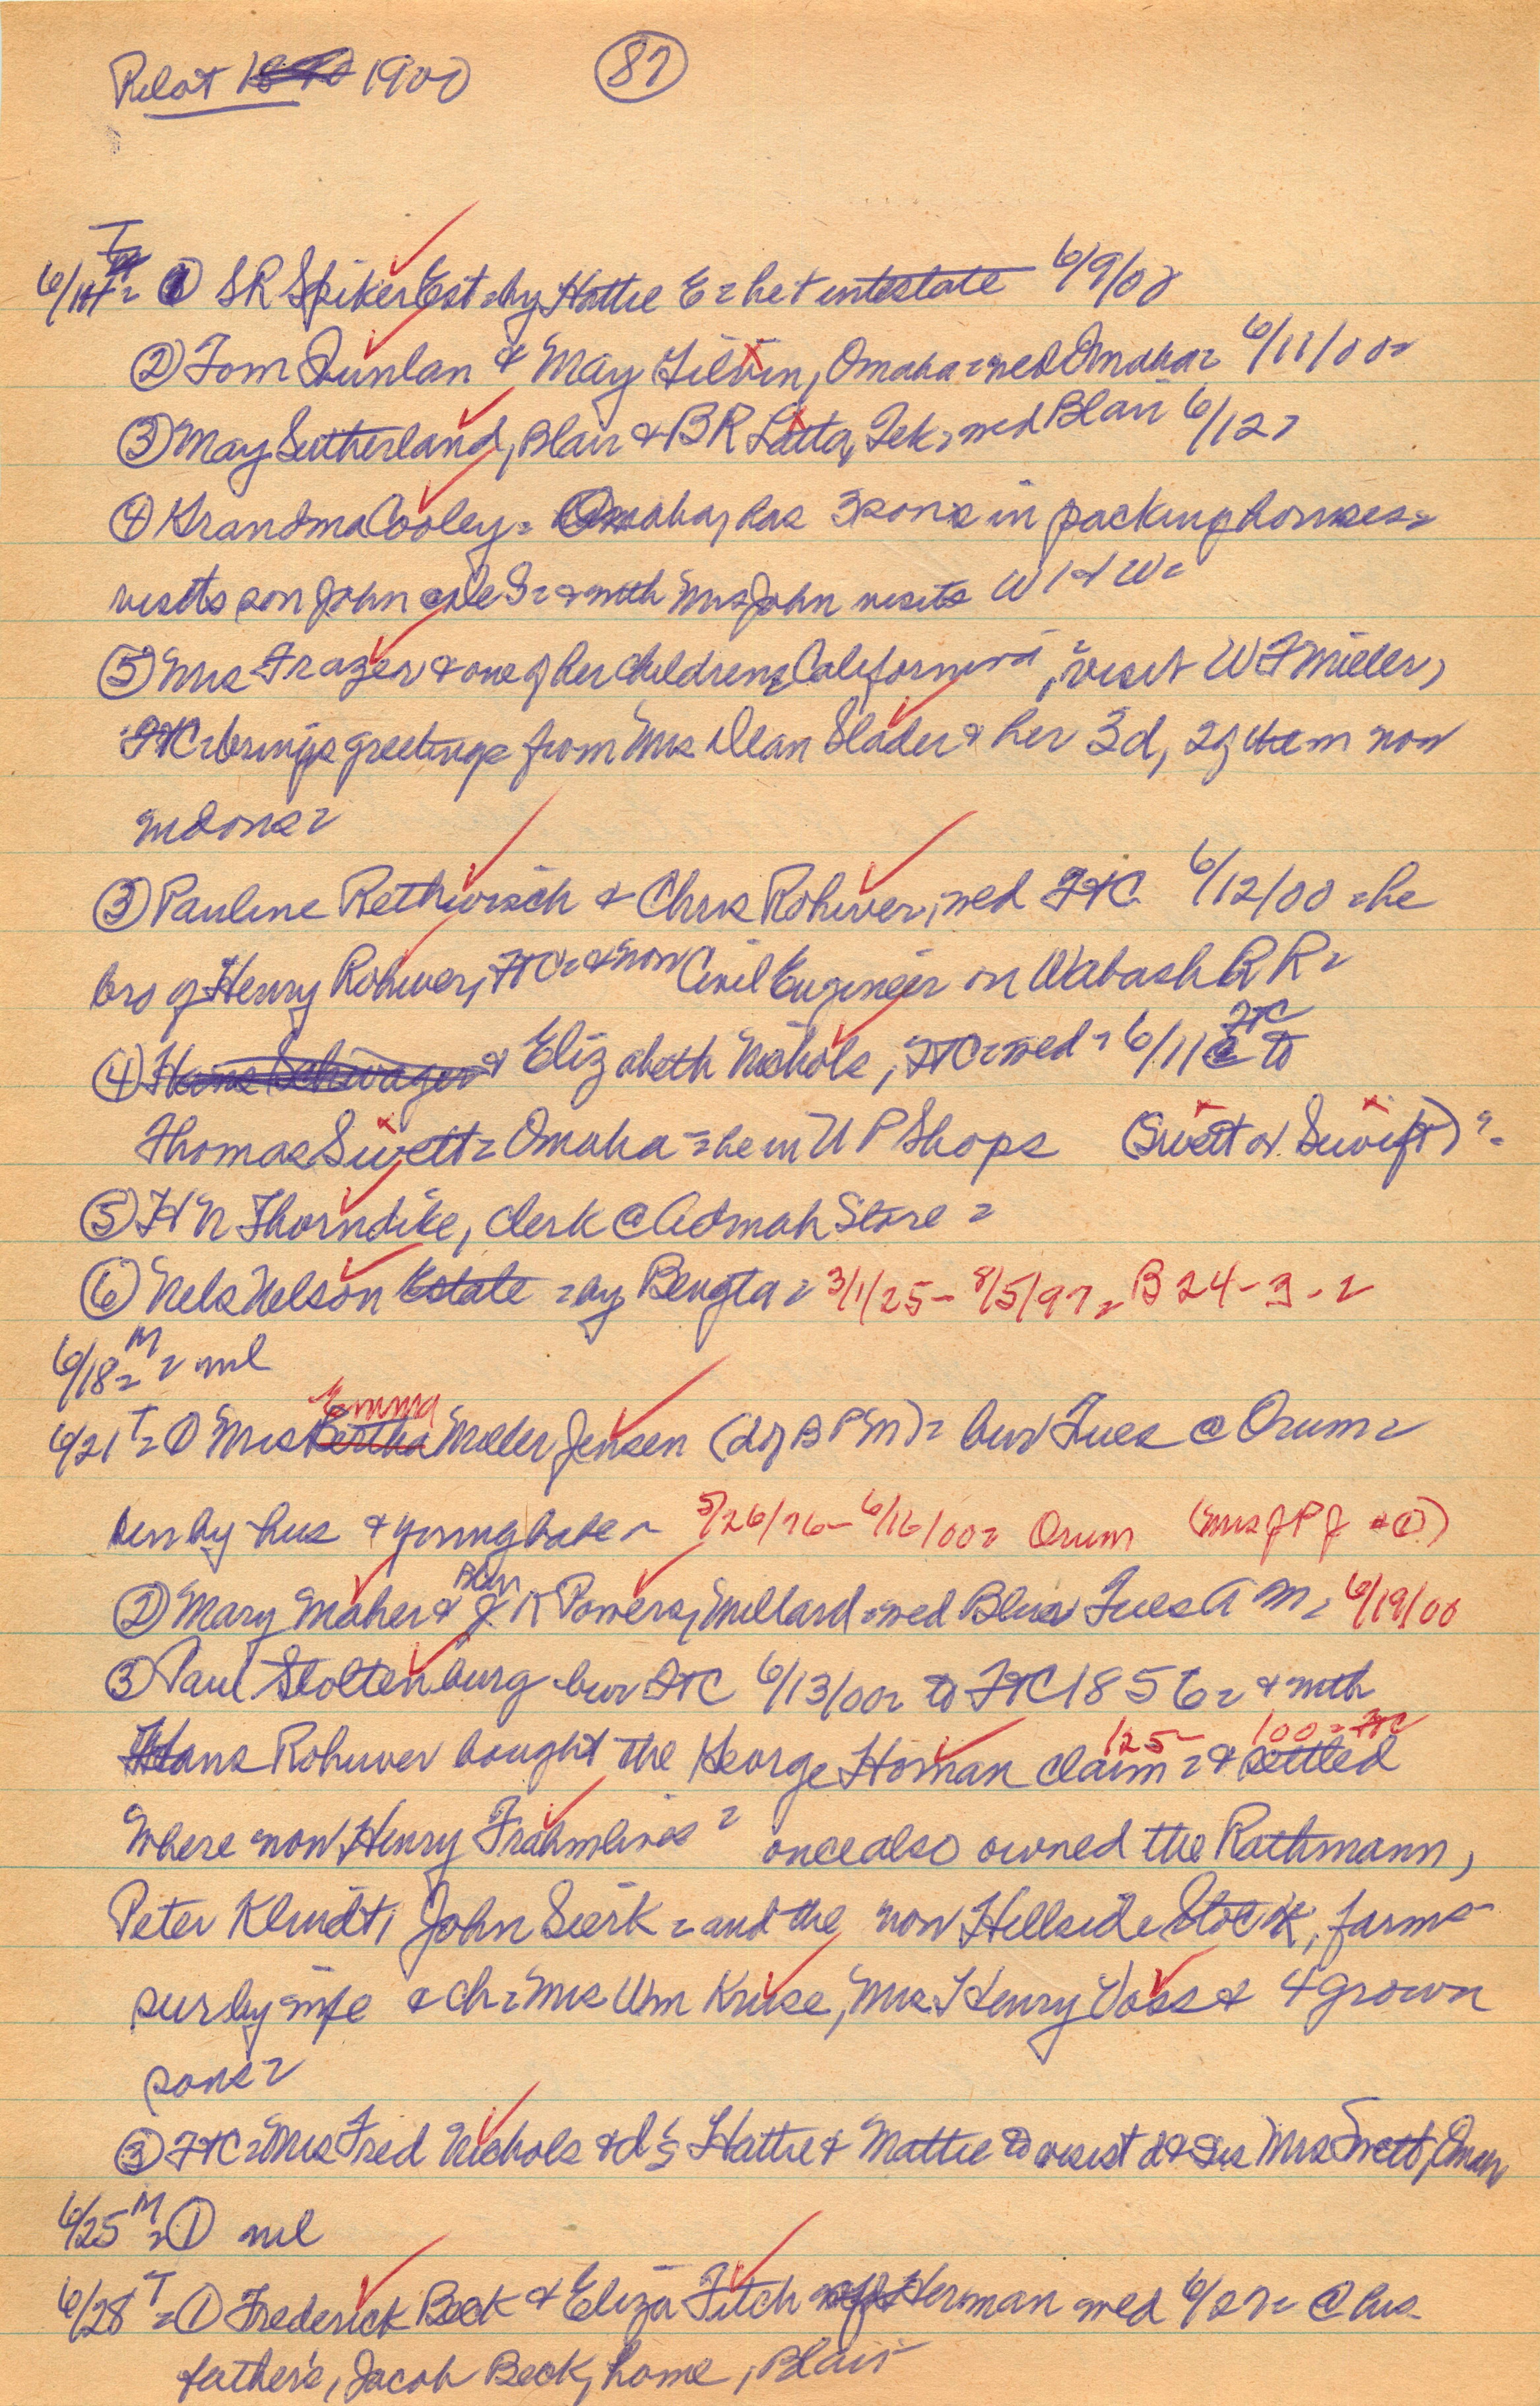 Pilot 1900 (87)
6/14 T = ① SR Spiker Est = by Hattie E = het intestate 6/9/00
② Tom Dunlan & May Filbin, Omaha = wed Omaha = 6/11/00 =
③ May Sutherland, Blair & BR Latta, Tek = wed Blair 6/12 =
④ Grandma Cooley = Omaha, has 3 sons in packing houses =
visits son John @ De S = & with Mrs John visits W I & W =
⑤ Mrs Frazer & one of her children, California, visit W F Miller,
FTC = brings greetings from Mrs Dean Slader & her 3d, 2 of them now
in Dons =
③ Pauline Rethwisch & Chris Rohwer, wed FTC 6/12/00 = he
bro of Henry Rohwer, FTC = & now Civil Engineer on Wabash R R =
④ Hans Schwager & Elizabeth Nichols, FTC = wed = 6/11 @ FTC to
Thomas Swett = Omaha = he in U P Shops (Swett or Swift) ? =
⑤ H N Thorndike, clerk @ Admah Store =
⑥ Nels Nelson Estate = by Bengta = 3/1/25 - 8/5/97 = B 24 - 3 - 2
6/18 = M = nil
6/21 T = ① Mrs Bertha Emma Miller Jensen (d of B P M) = bur Tues @ Orum =
sur by hus & young babe - 5/26/76 - 6/16/00 = Orum (Mrs J P J = ①)
② Mary Maher, Blair & J K Powers, Millard = wed Blair Tues A M = 6/19/00
③ Paul Stoltenburg bur FTC 6/13/00 = to FTC 1856 = & with
Hans Rohwer bought the George Homan claim 125 - = & settled 100 = FTC
where now Henry Frahm lives = once also owned the Rathmann,
Peter Klindt, John Sierk = and the now Hillside Stock, farms
sur by wife & ch = Mrs Wm Kruse, Mrs Henry Voss & 4 grown
sons =
③ FTC = Mrs Fred Nichols & d's Hattie & Mattie to visit d & sis Mrs Swett, Omaha
6/25 M = ① nil
6/28 T = ① Frederick Beck & Eliza Fitch Herman wed 6/27 = @ his
father's, Jacob Beck, home, Blair